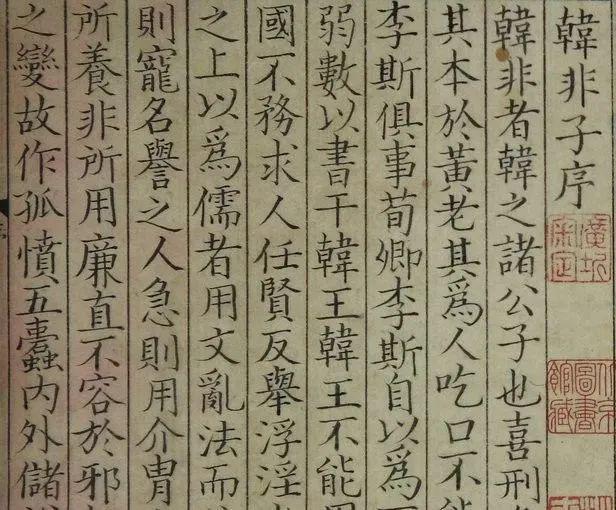 韓非子序
廣圻審定
圖書館藏
韓非者韓之諸公子也喜刑
其本於黃老其爲人吃口不能
李斯俱事荀卿李斯自以爲
弱數以書干韓王韓王不能
國不務求人任賢反舉浮淫
之上以爲儒者用文亂法而
則寵名譽之人急則用介胄
所養非所用廉直不容於邪
之變故作孤憤五蠹內外儲